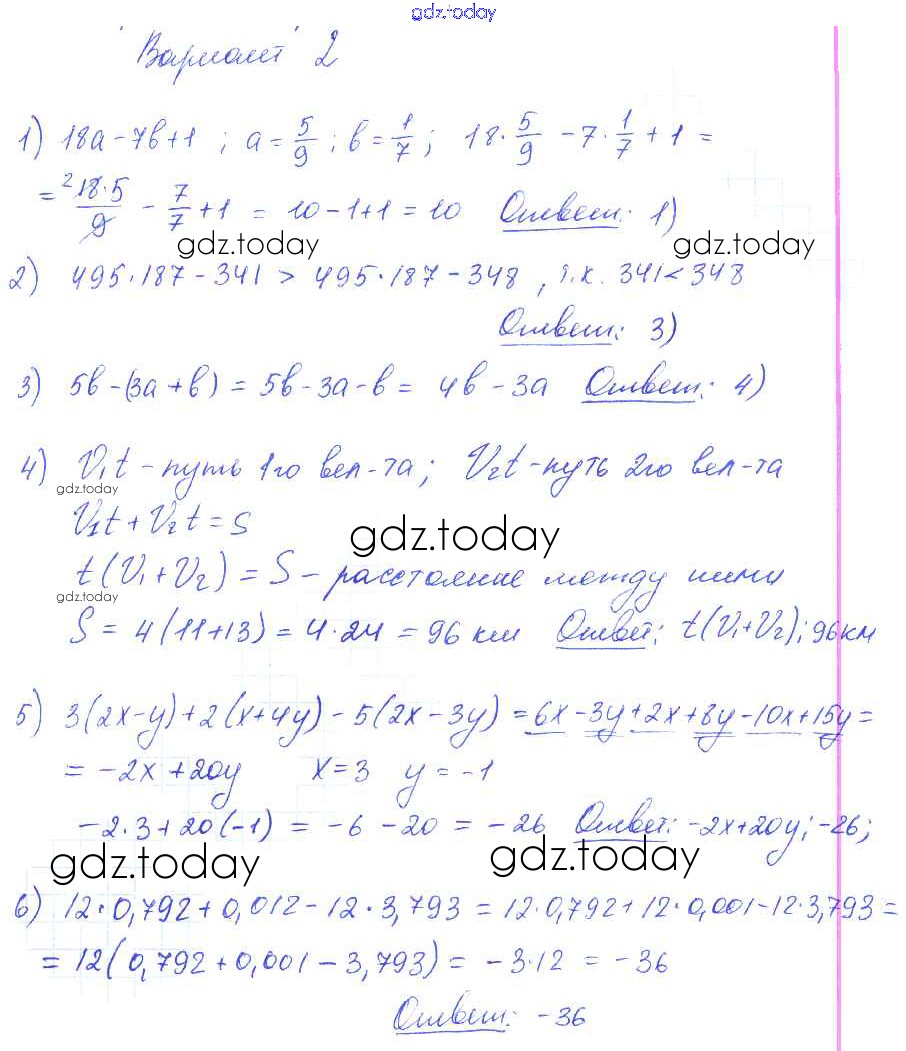 gdz.today
Вариант 2
1) 18a-7b+1 ; a=5/9 ; b=1/7 ; 18·5/9 -7·1/7 +1 =
= ²18·5/9 - 7/7 +1 = 10-1+1 = 10 Ответ: 1)
gdz.today gdz.today
2) 495·187-341 > 495·187-348 , т.к. 341<348
Ответ: 3)
3) 5b-(3a+b) = 5b-3a-b = 4b-3a Ответ: 4)
4) V₁t - путь 1го вел-та; V₂t - путь 2го вел-та
gdz.today
V₁t + V₂t = S
gdz.today
t(V₁+V₂) = S - расстояние между ними
gdz.today
S = 4(11+13) = 4·24 = 96 км Ответ: t(V₁+V₂); 96км
5) 3(2x-y)+2(x+4y)-5(2x-3y) = 6x-3y+2x+8y-10x+15y =
= -2x+20y x=3 y=-1
-2·3+20(-1) = -6-20 = -26 Ответ: -2x+20y; -26;
gdz.today gdz.today
6) 12·0,792+0,012-12·3,793 = 12·0,792+12·0,001-12·3,793 =
= 12(0,792+0,001-3,793) = -3·12 = -36
Ответ: -36